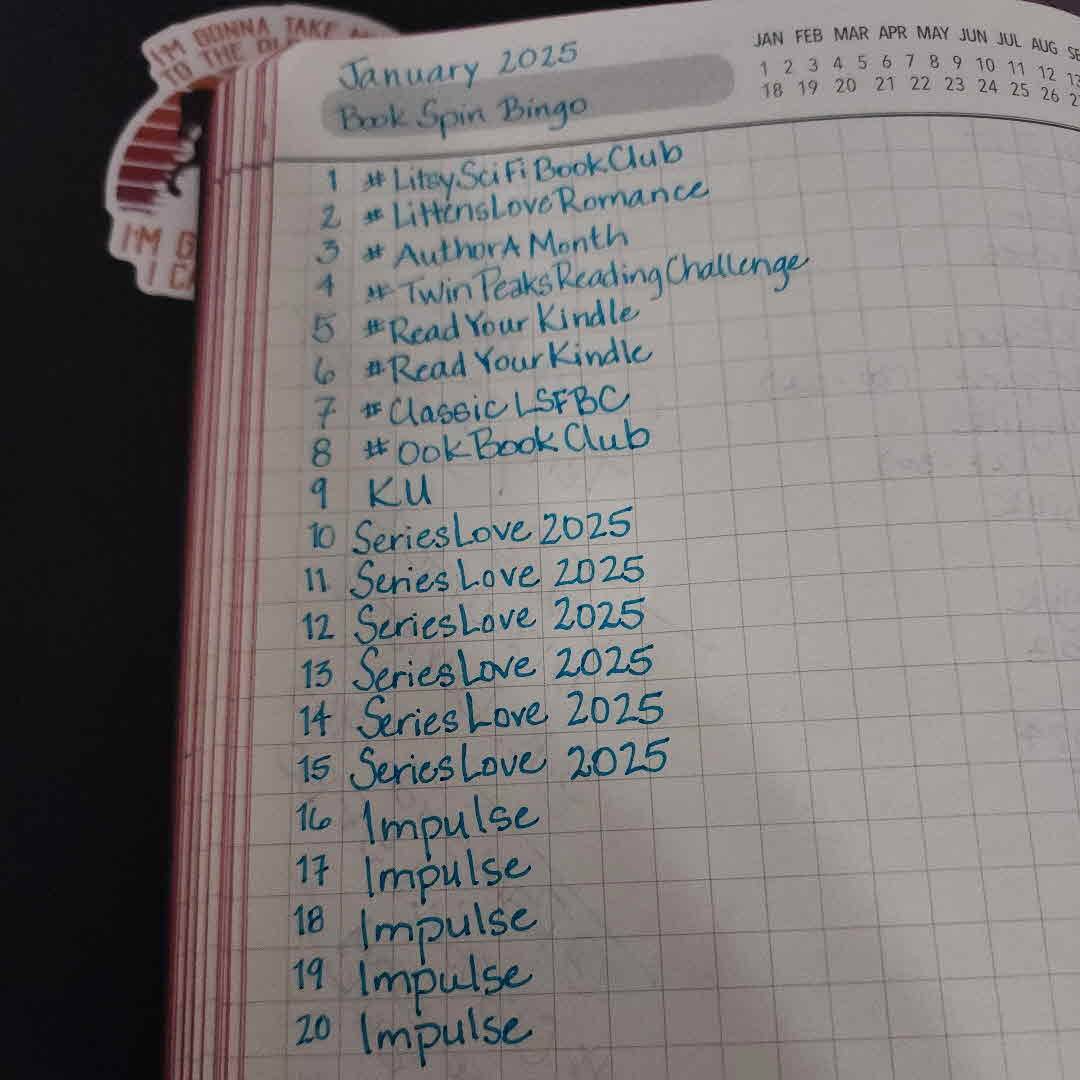 I'M GONNA TAKE
TO THE
I'M G
I CA
JAN FEB MAR APR MAY JUN JUL AUG SE
1 2 3 4 5 6 7 8 9 10 11 12 13
18 19 20 21 22 23 24 25 26 2
January 2025
Book Spin Bingo
1 #LitsySciFiBookClub
2 #LittensLoveRomance
3 #AuthorAMonth
4 #TwinPeaksReadingChallenge
5 #ReadYourKindle
6 #ReadYourKindle
7 #ClassicLSFBC
8 #OokBookClub
9 KU
10 SeriesLove 2025
11 SeriesLove 2025
12 SeriesLove 2025
13 SeriesLove 2025
14 SeriesLove 2025
15 SeriesLove 2025
16 Impulse
17 Impulse
18 Impulse
19 Impulse
20 Impulse